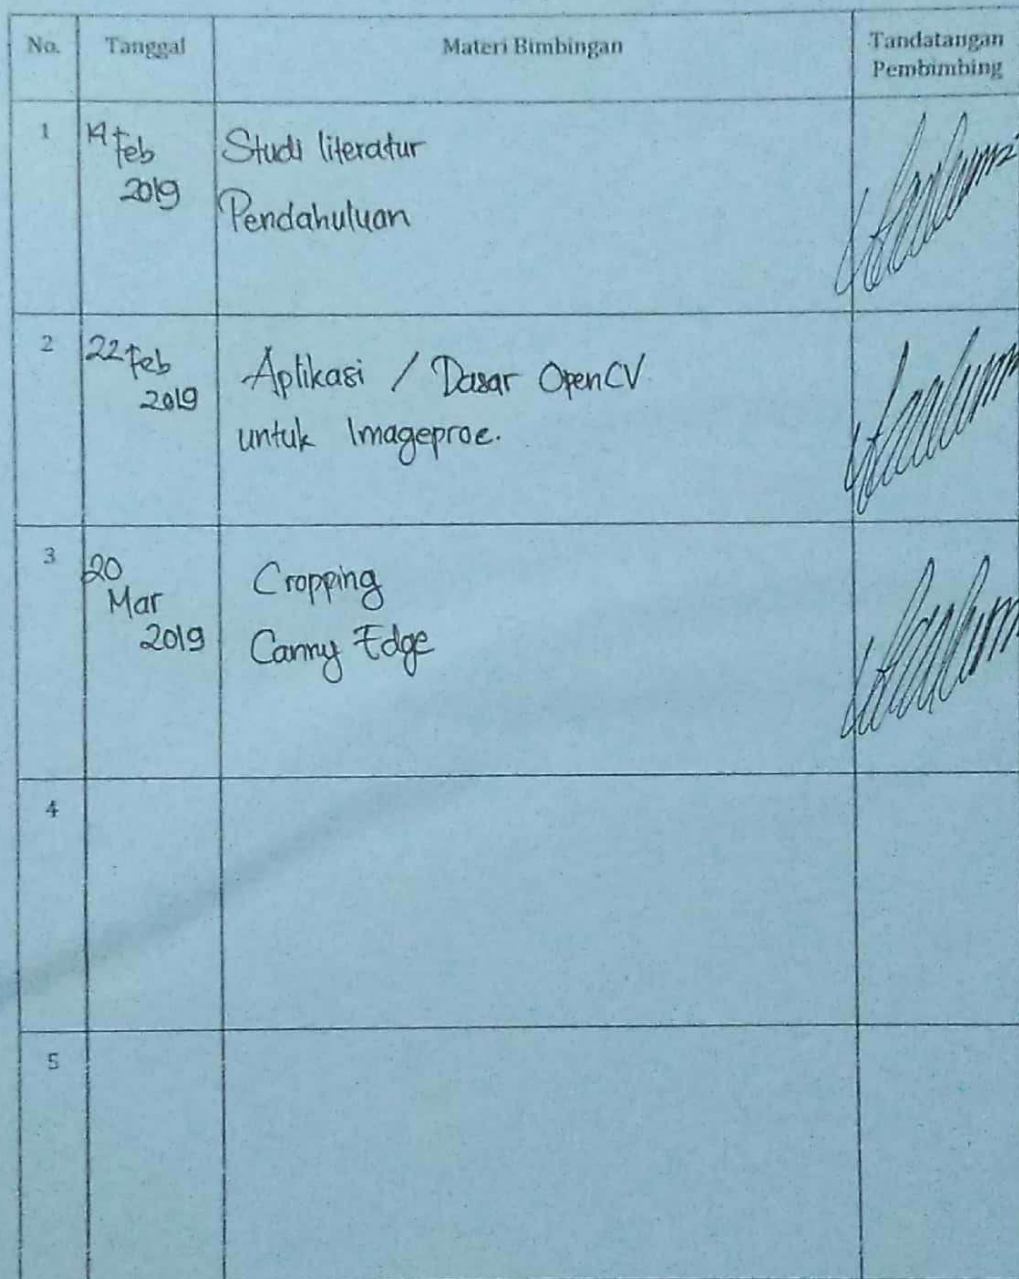 No. Tanggal Materi Bimbingan Tandatangan
Pembimbing
1 14 Feb Studi literatur
2019
Pendahuluan
2 22 Feb Aplikasi / Dasar OpenCV
2019
untuk Imageproc.
3 20 Cropping
Mar
2019 Canny Edge
4
5